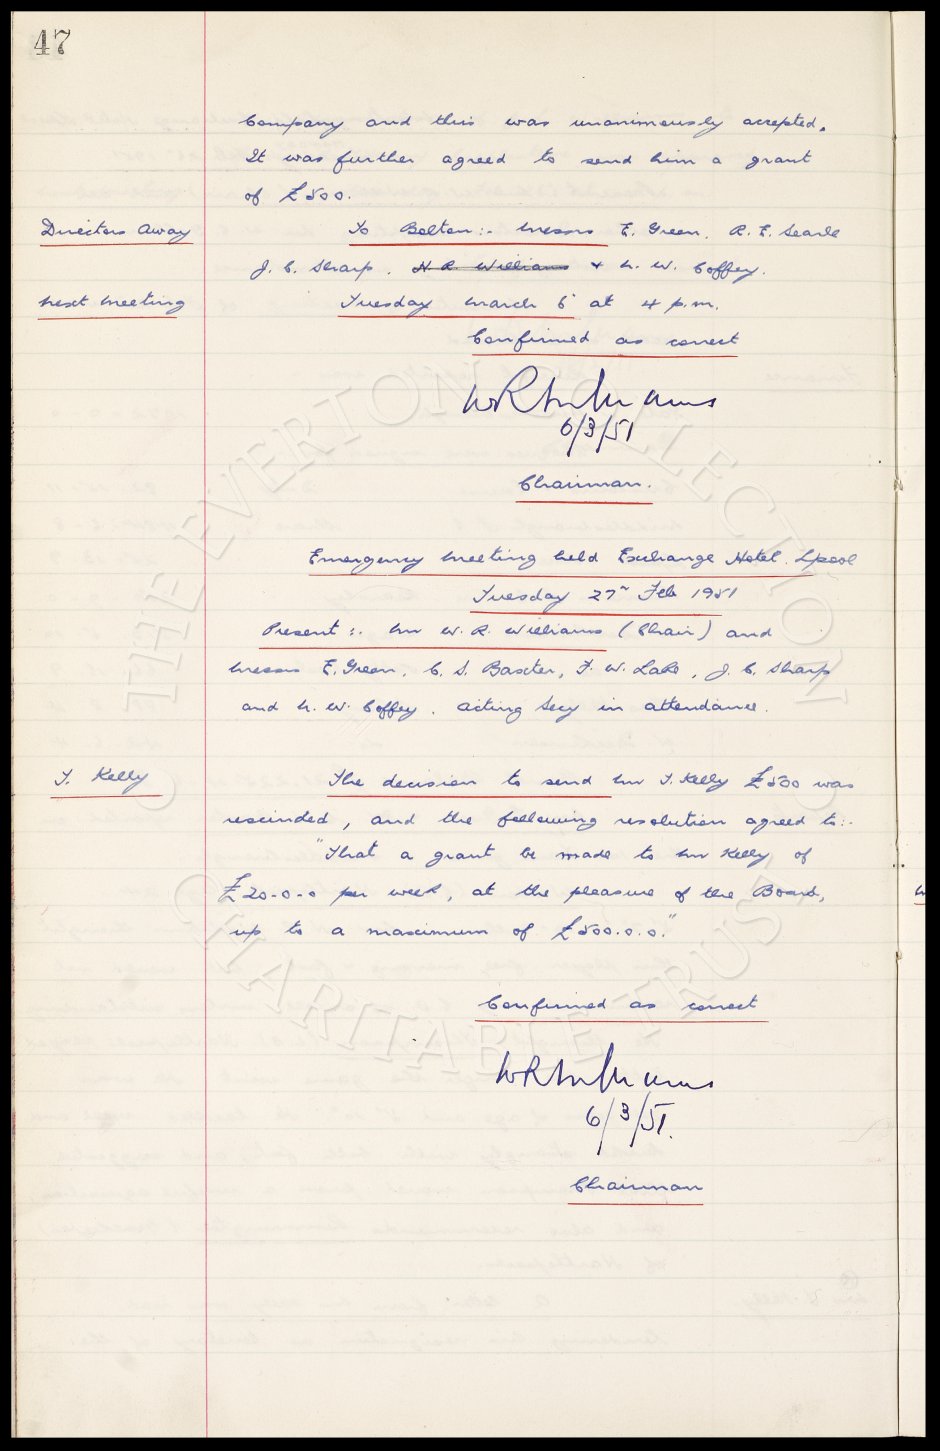 47
Company and this was unanimously accepted.
It was further agreed to send him a grant
of £500.
Directors Away To Bolton:- Messrs E. Green, R. E. Searle
J. C. Sharp, H. R. Williams & N. W. Coffey.
Next Meeting Tuesday March 6 at 4 p.m.
Confirmed as correct
WR Williams
6/3/51
Chairman.
Emergency Meeting held Exchange Hotel. Lpool
Tuesday 27 Feb 1951
Present:- Mr W. R. Williams (Chair) and
Messrs E. Green, C. S. Baxter, F. W. Lake, J. C. Sharp
and N. W. Coffey. Acting Secy in attendance.
T. Kelly The decision to send Mr T. Kelly £500 was
rescinded, and the following resolution agreed to:-
"That a grant be made to Mr Kelly of
£20-0-0 per week, at the pleasure of the Board,
up to a maximum of £500.0.0."
Confirmed as correct
WR Williams
6/3/51.
Chairman
THE EVERTON COLLECTION
CHARITABLE TRUST